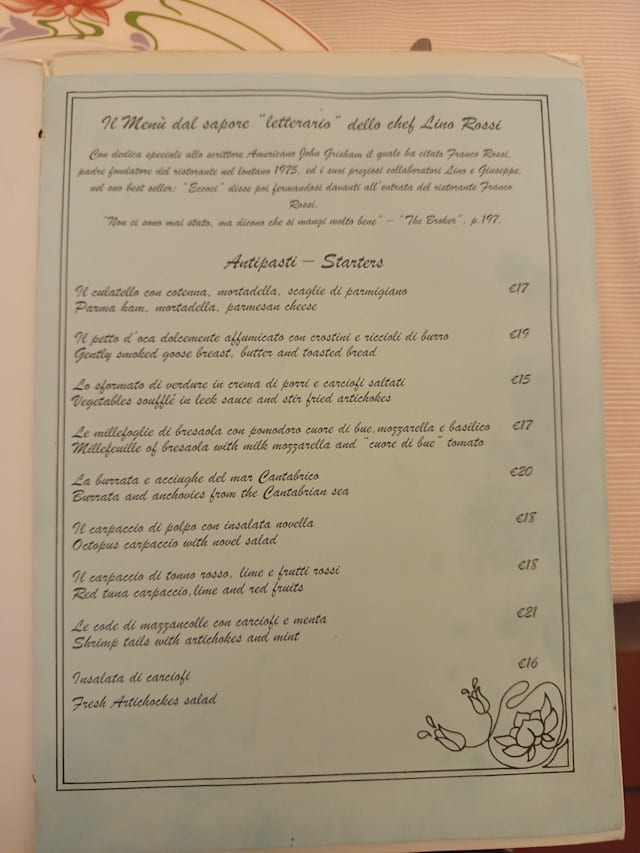 Il Menù dal sapore "letterario" dello chef Lino Rossi
Con dedica speciale allo scrittore Americano John Grisham il quale ha citato Franco Rossi,
padre fondatore del ristorante nel lontano 1975, ed i suoi preziosi collaboratori Lino e Giuseppe,
nel suo best seller: "Eccoci" disse poi fermandosi davanti all'entrata del ristorante Franco
Rossi.
"Non ci sono mai stato, ma dicono che si mangi molto bene" – "The Broker", p.197.
Antipasti – Starters
Il culatello con cotenna, mortadella, scaglie di parmigiano €17
Parma ham, mortadella, parmesan cheese
Il petto d'oca dolcemente affumicato con crostini e riccioli di burro €19
Gently smoked goose breast, butter and toasted bread
Lo sformato di verdure in crema di porri e carciofi saltati €15
Vegetables soufflé in leek sauce and stir fried artichokes
Le millefoglie di bresaola con pomodoro cuore di bue,mozzarella e basilico €17
Millefeuille of bresaola with milk mozzarella and "cuore di bue" tomato
La burrata e acciughe del mar Cantabrico €20
Burrata and anchovies from the Cantabrian sea
Il carpaccio di polpo con insalata novella €18
Octopus carpaccio with novel salad
Il carpaccio di tonno rosso, lime e frutti rossi €18
Red tuna carpaccio,lime and red fruits
Le code di mazzancolle con carciofi e menta €21
Shrimp tails with artichokes and mint
Insalata di carciofi €16
Fresh Artichockes salad